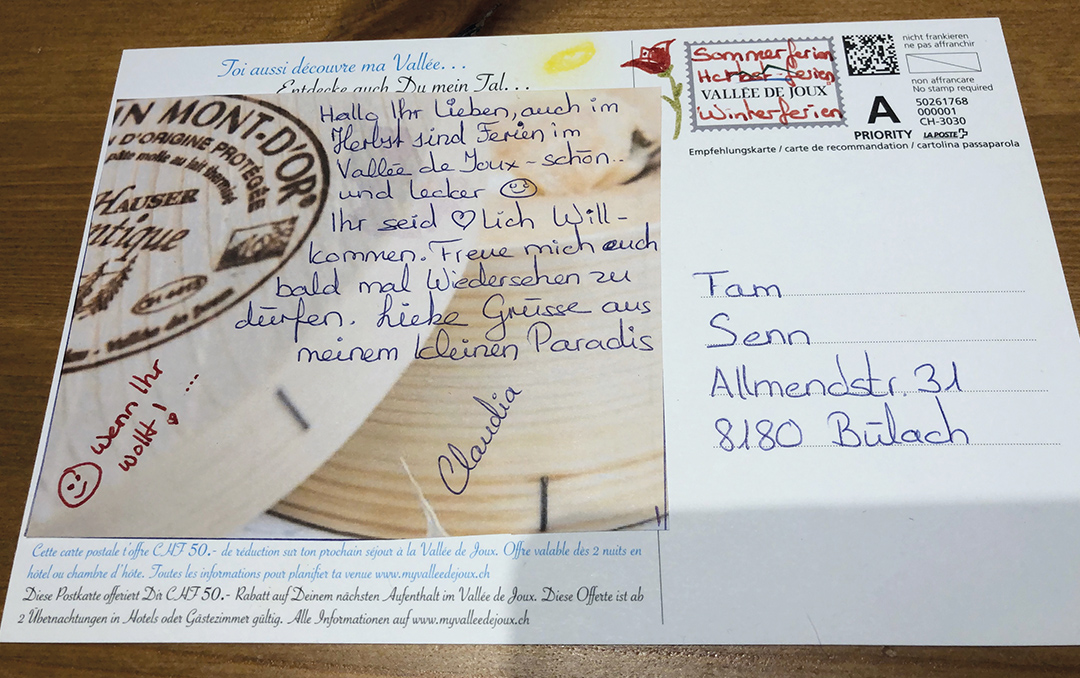 Toi aussi découvre ma Vallée...
Entdecke auch Du mein Tal...
IN MONT-D'OR
D'ORIGINE PROTÉGÉE
pâte molle au lait thermisé
HAUSER
ntique
CH 4012
Vallée de Joux
Hallo Ihr Lieben, auch im
Herbst sind Ferien im
Vallée de Joux - schön..
und lecker
Ihr seid ♡lich Will-
kommen. Freue mich euch
bald mal Wiedersehen zu
dürfen. Liebe Grüsse aus
meinem kleinen Paradis
Claudia
wenn Ihr
wollt! ...
Cette carte postale t'offre CHF 50.- de réduction sur ton prochain séjour à la Vallée de Joux. Offre valable dès 2 nuits en
hôtel ou chambre d'hôte. Toutes les informations pour planifier ta venue www.myvalleedejoux.ch
Diese Postkarte offeriert Dir CHF 50.- Rabatt auf Deinem nächsten Aufenthalt im Vallée de Joux. Diese Offerte ist ab
2 Übernachtungen in Hotels oder Gästezimmer gültig. Alle Informationen auf www.myvalleedejoux.ch
Sommerferien
Herbst-ferien
VALLÉE DE JOUX
Winterferien
nicht frankieren
ne pas affranchir
non affrancare
No stamp required
A
PRIORITY
50261768
000001
CH-3030
LA POSTE
Empfehlungskarte / carte de recommandation / cartolina passaparola
Fam
Senn
Allmendstr. 31
8180 Bülach